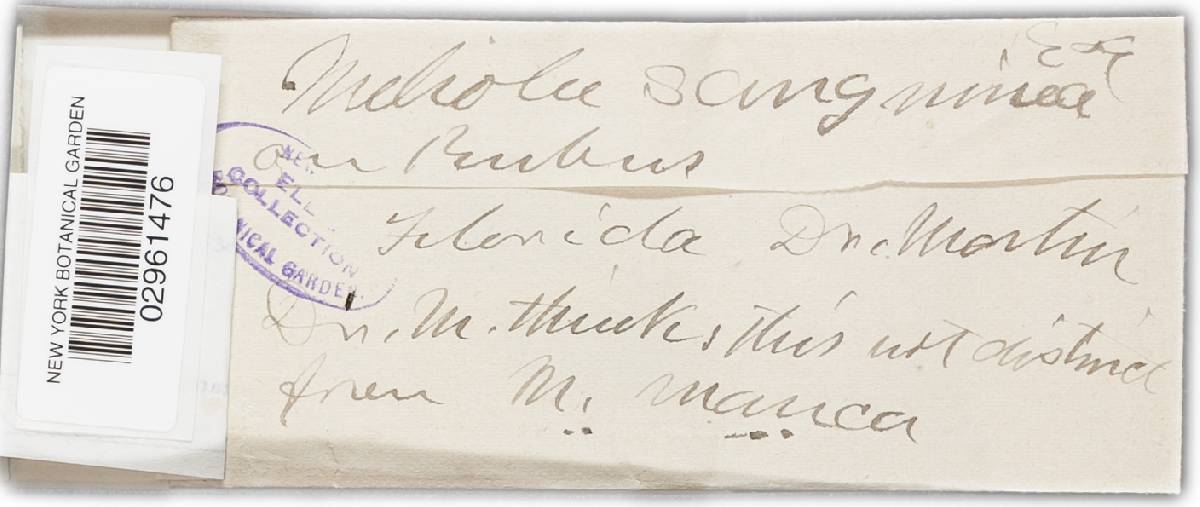 NEW YORK BOTANICAL GARDEN
02961476
Meliola sanguinea
E & E
on Rubus
ELL
COLLECTION
NICAL GARDEN
Florida Dr. Martin
Dr. M. thinks this not distinct
from M. manca